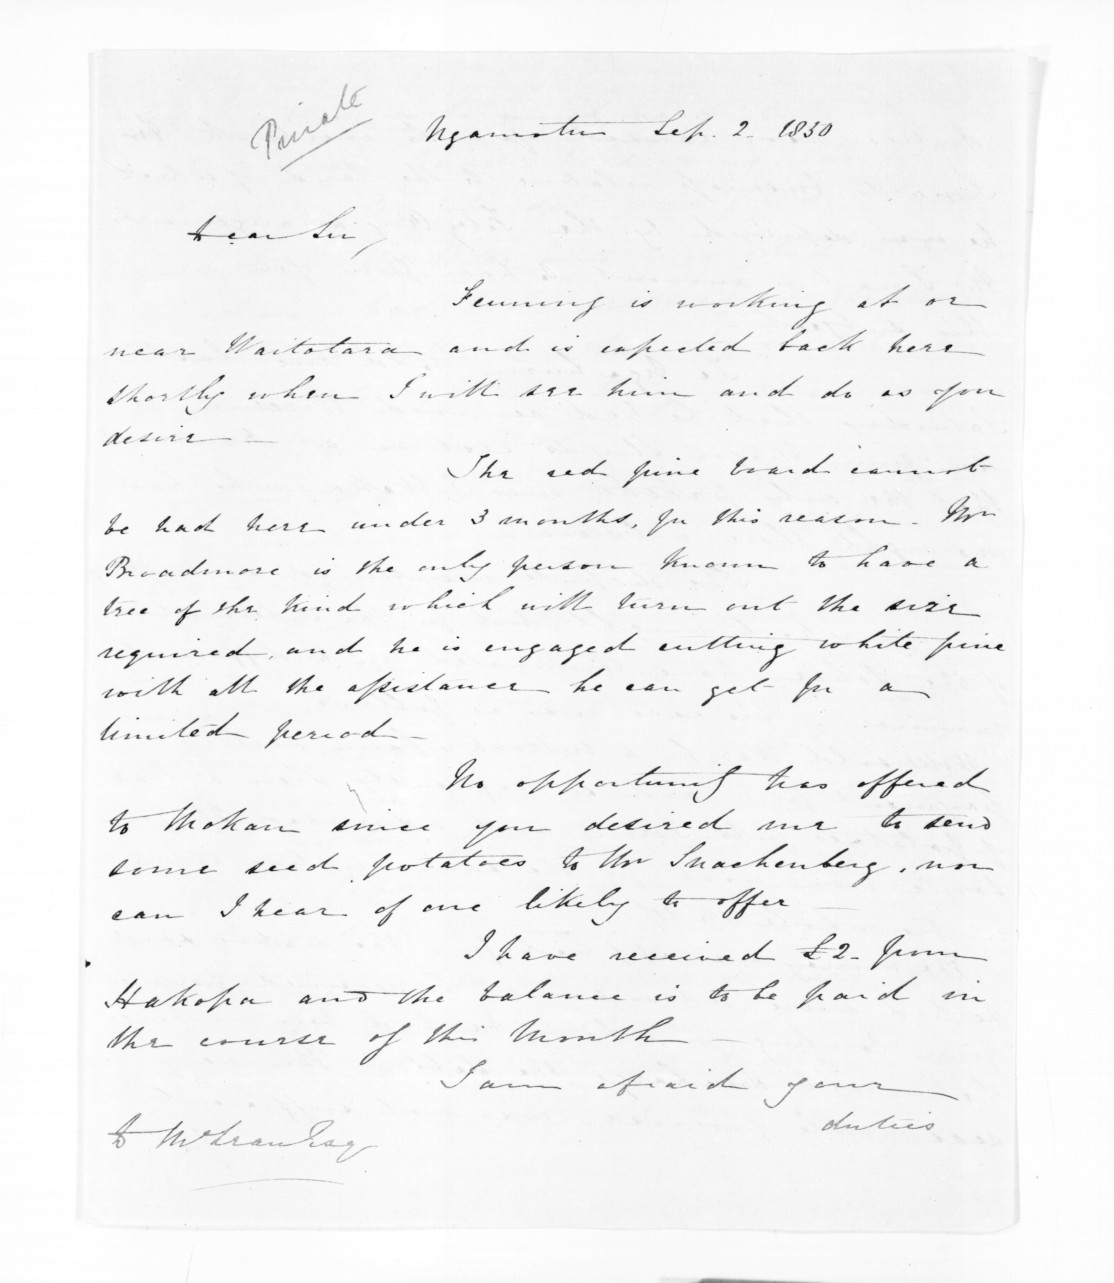 Private
Ngamotu Sep. 2. 1850
Dear Sir,
Fenning is working at or
near Waitotara and is expected back here
shortly when I will see him and do as you
desire —
The red pine board cannot
be had here under 3 months, for this reason. Mr
Broadmore is the only person known to have a
tree of the kind which will turn out the size
required, and he is engaged cutting white pine
with all the assistance he can get for a
limited period —
No opportunity has offered
to Mokau since you desired me to send
some seed potatoes to Mr Snackenberg, nor
can I hear of one likely to offer —
I have received £2 - from
Hakopa and the balance is to be paid in
the course of this Month —
I am afraid your
duties
D McLean Esq